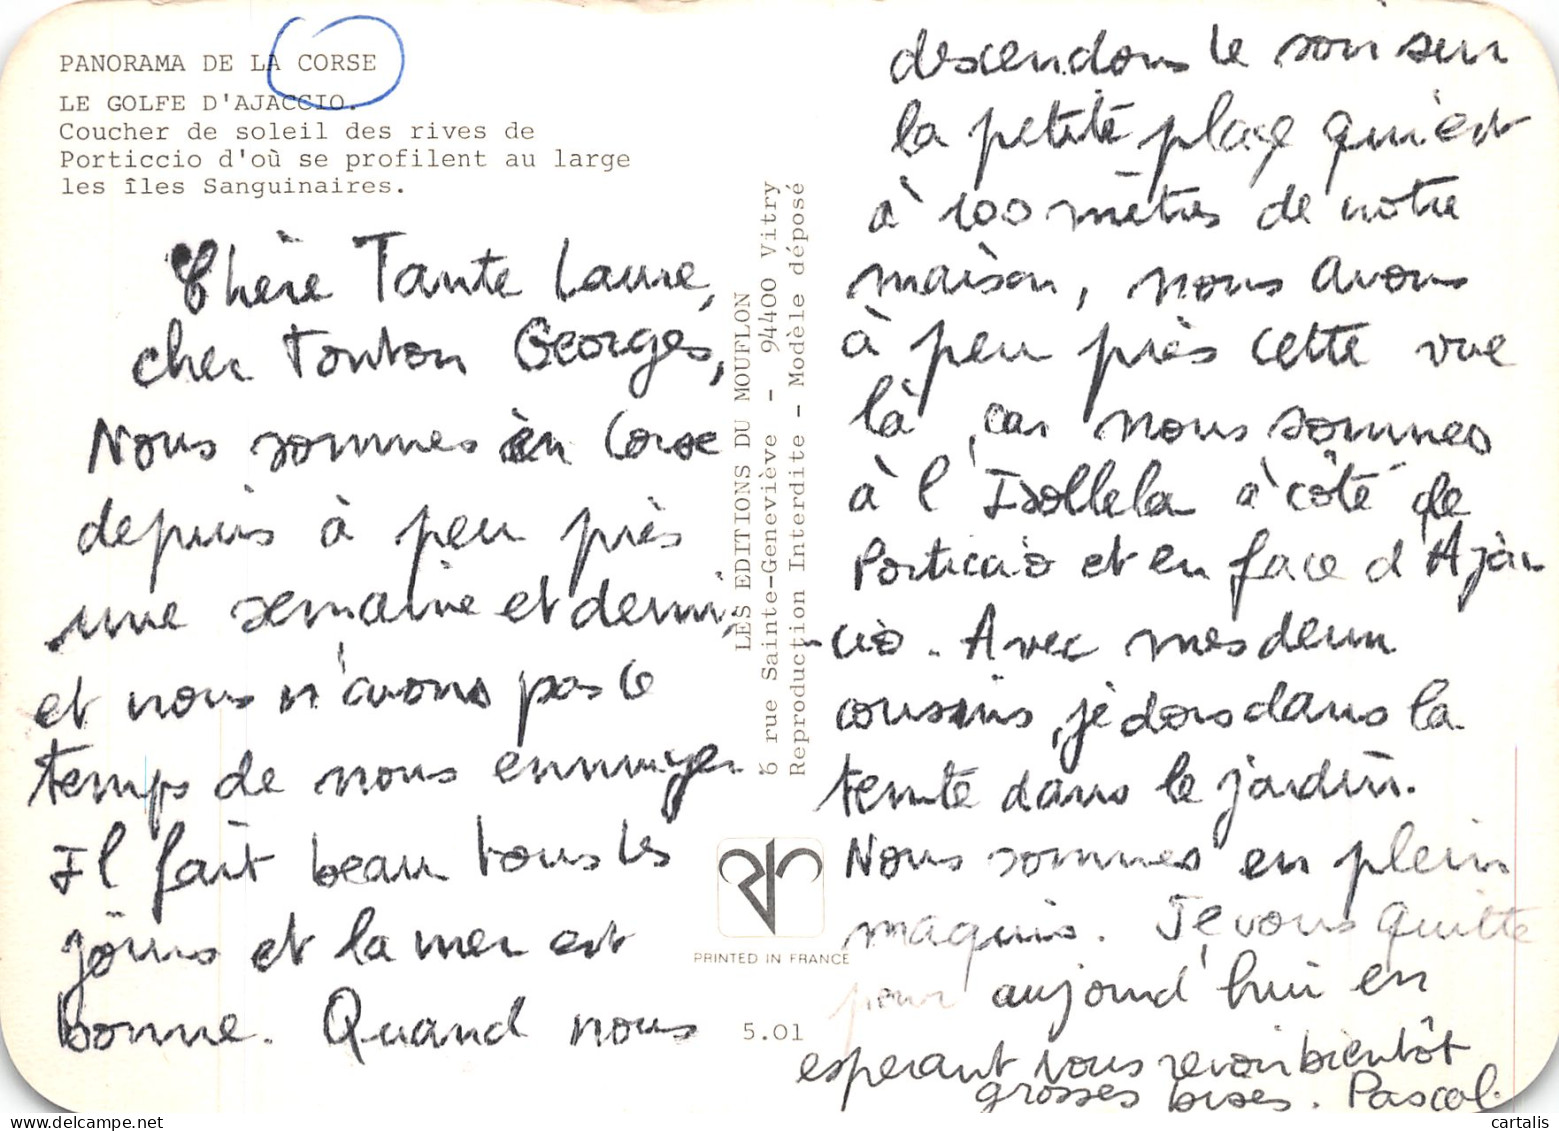 PANORAMA DE LA CORSE
LE GOLFE D'AJACCIO.
Coucher de soleil des rives de
Porticcio d'où se profilent au large
les îles Sanguinaires.
Chère Tante Laure,
cher Tonton Georges,
Nous sommes en Corse
depuis à peu près
une semaine et demi,
et nous n'avons pas le
temps de nous ennuyer.
Il fait beau tous les
jours et la mer est
bonne. Quand nous
LES EDITIONS DU MOUFLON
6 rue Sainte-Geneviève - 94400 Vitry
Reproduction Interdite - Modèle déposé
PRINTED IN FRANCE
5.01
descendons le soir sur
la petite plage qui est
à 100 mètres de notre
maison, nous avons
à peu près cette vue
là, car nous sommes
à l'Isollela à côté de
Porticcio et en face d'Ajac
-cio. Avec mes deux
cousins, je dors dans la
tente dans le jardin.
Nous sommes en plein
maquis. Je vous quitte
pour aujourd'hui en
esperant vous revoir bientôt
grosses bises. Pascal.
cartalis